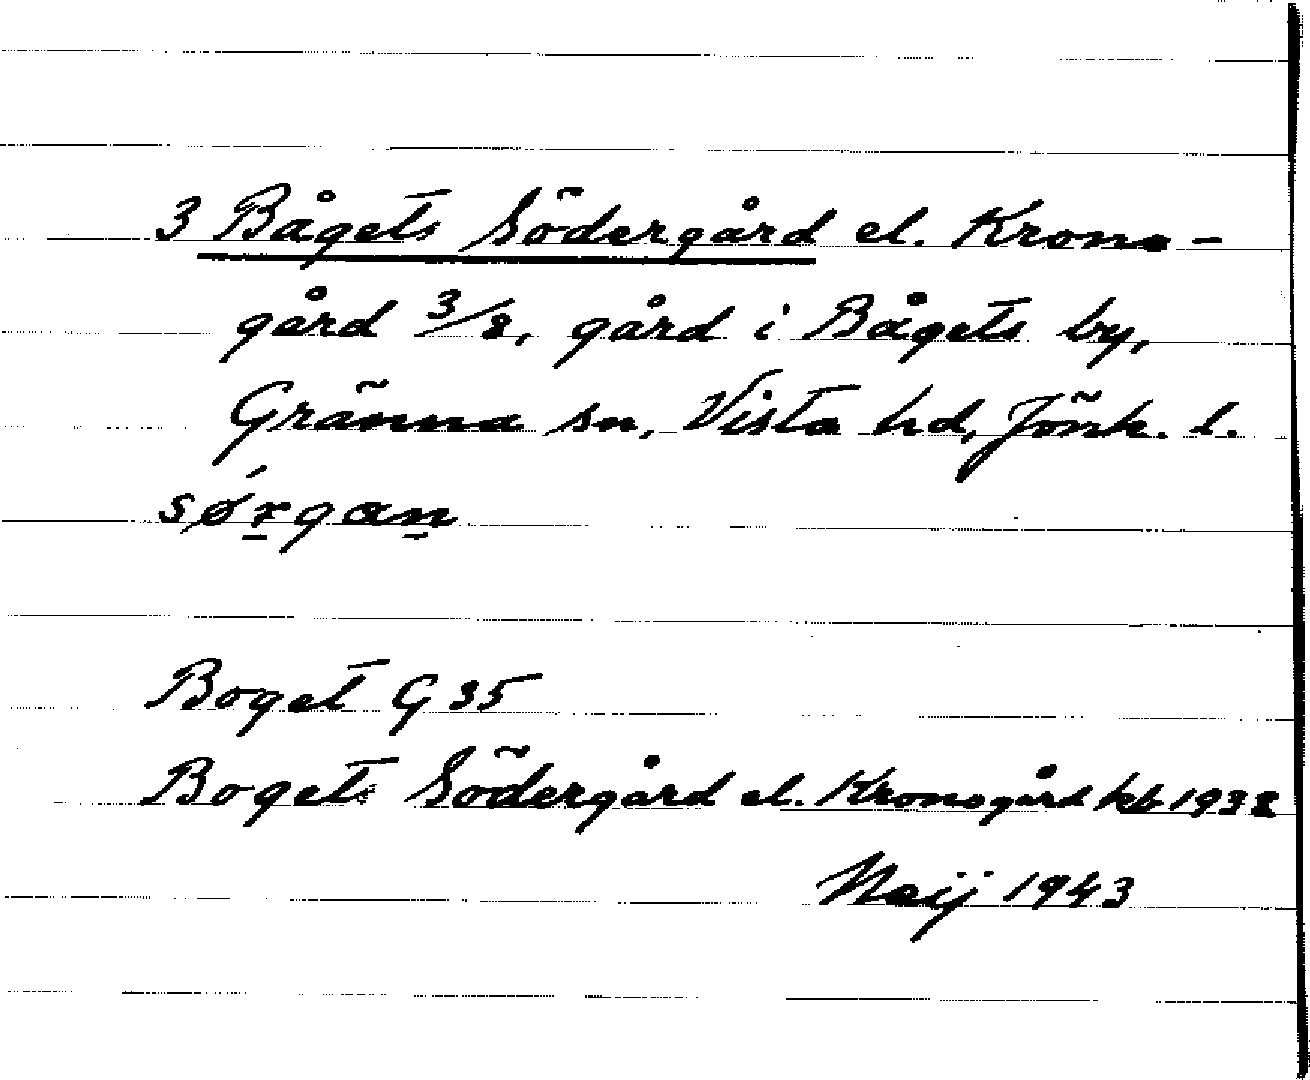 3 Bågets Södergård el. Krono-
gård 3/8, gård i Bågets by,
Gränna sn, Vista hd, Jönk. l.
sørgan
Boget G 35
Bogets Södergård el. Kronogård kb 1932
Meij 1943